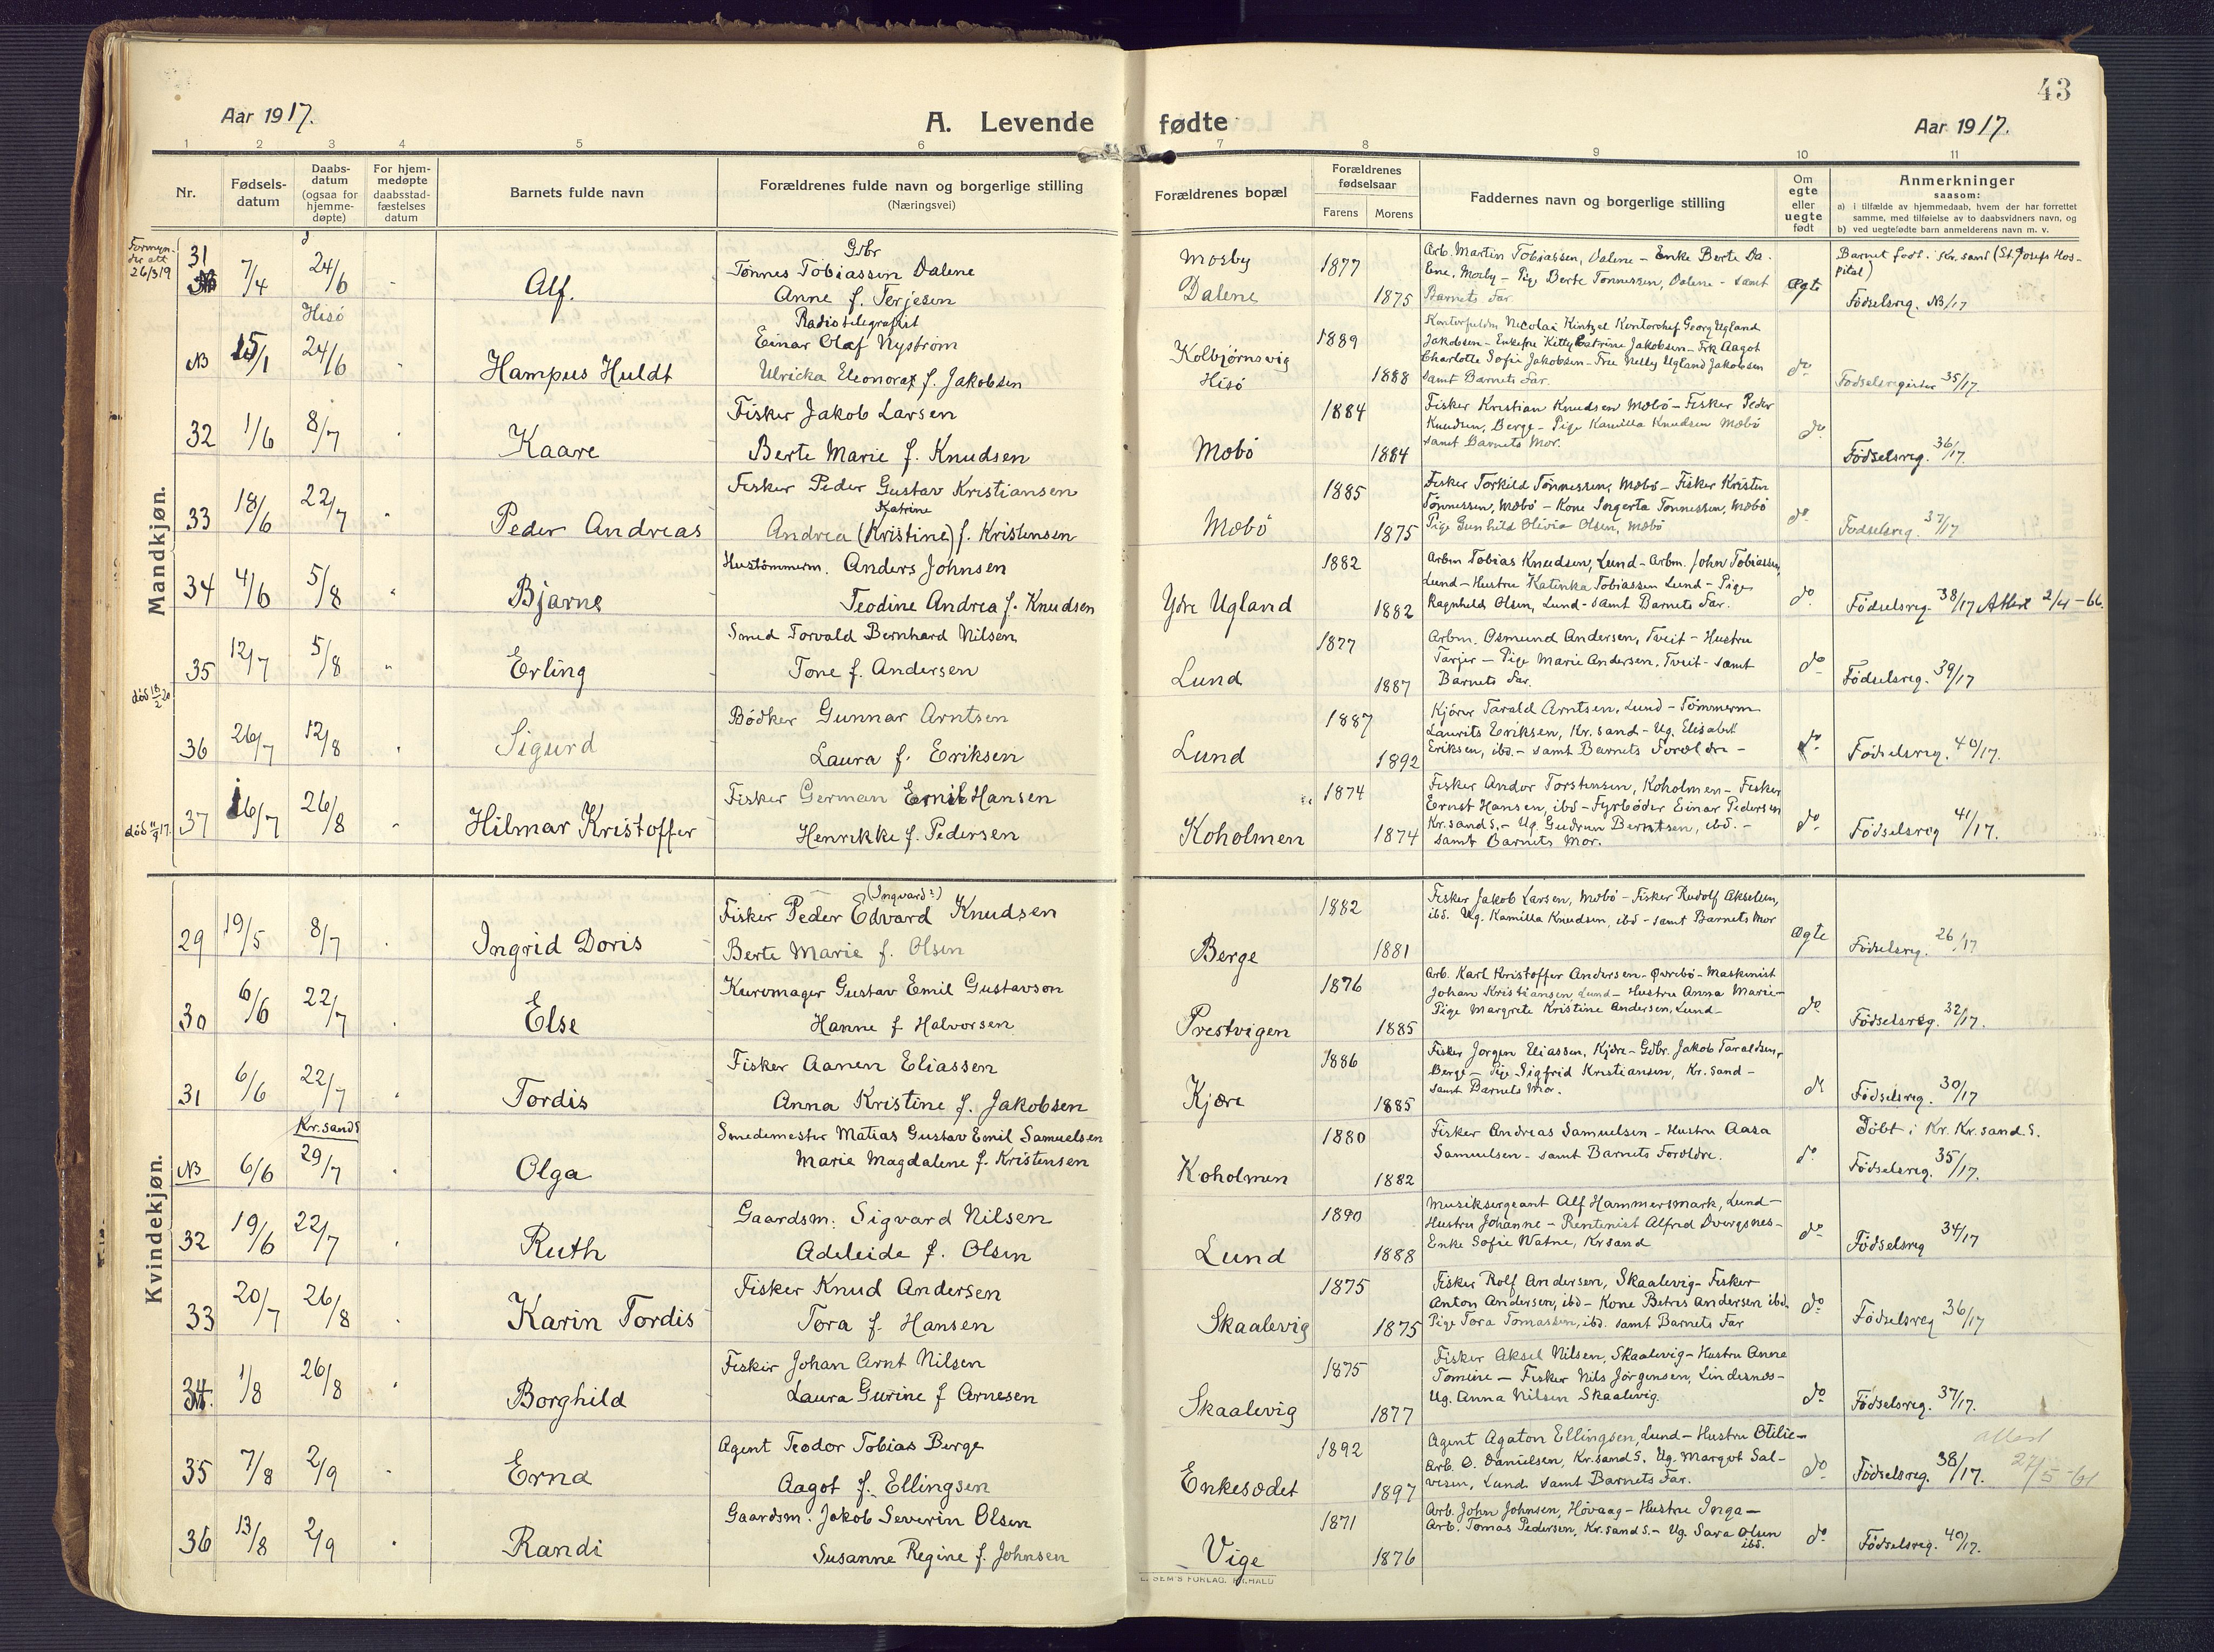 43
Aar 1917.
A. Levende fødte
Aar 1917.
1 2 3 4 5 6 7 8 9 10 11
Nr.
Fødsels-
datum
Daabs-
datum
(ogsaa for
hjemme-
døpte)
For hjem-
medøpte
daabsstad-
fæstelses
datum
Barnets fulde navn
Forældrenes fulde navn og borgerlige stilling
(Næringsvei)
Forældrenes bopæl
Forældrenes
fødselsaar
Farens
Morens
Faddernes navn og borgerlige stilling
Om
egte
eller
uegte
født
Anmerkninger
saasom:
a) i tilfælde av hjemmedaab, hvem der har forrettet
samme, med tilføielse av to daabsvidners navn, og
b) ved uegtefødte barn anmelderens navn m. v.
Mandkjøn.
31 7/4 24/6 Alf.
Gdbr
Tønnes Tobiassen Dalene
Anne f. Terjesen
Mosby
Dalene
1877
1875
Arb. Martin Tobiassen, Dalene – Enke Berte Da-
lene, Mosby – Pige Berte Tønnessen, Dalene – samt
Barnets Far
Ægte
Barnet født i Kr.sand (St. Josefs Hos-
pital)
Fødselsreg. NB/17
Hisö
NB 15/1 24/6 Hampus Huldt
Radiotelegrafist
Einar Olaf Nyström
Ulricka Eleonora f. Jakobsen
Kolbjørnsvig
Hisö
1889
1888
Kontorfuldm Nicolai Kintzel Kontorchef Georg Ugland
Jakobsen – Enkefru Kitty Catrine Jakobsen – Frk Aagot
Charlotte Sofie Jakobsen – Frue Nelly Ugland Jakobsen
samt Barnets Far.
do
Fødselsregister 35/17.
32 1/6 8/7 Kaare
Fisker Jakob Larsen
Berte Marie f. Knudsen
Mæbö
1884
1884
Fisker Kristian Knudsen Mæbö – Fisker Peder
Knudsen, Berge – Pige Kamilla Knudsen Mæbö
samt Barnets Mor.
do
Fødselsreg. 36/17.
33 18/6 22/7 Peder Andreas
Fisker Peder Gustav Kristiansen
Katrine
Andrea (Kristine) f. Kristensen
Mæbö
1885
1875
Fisker Torkild Tønnessen, Mæbö – Fisker Kristen
Tønnessen, Mæbö – Kone Ingerta Tønnessen, Mæbö
Pige Gunhild Olivia Olsen, Mæbö
do
Fødselsreg. 37/17
34 4/6 5/8 Bjarne
Hustömmerm. Anders Johnsen
Teodine Andrea f. Knudsen
Ydre Ugland
1882
1882
Arbm Tobias Knudsen, Lund – Arbm. John Tobiassen,
Lund – Hustru Katinka Tobiassen Lund – Pige
Ragnhild Olsen, Lund – samt Barnets Far.
do
Fødselsreg. 38/17 Attest 2/4-66.
35 12/7 5/8 Erling
Smed Torvald Bernhard Nilsen
Tone f. Andersen
Lund
1877
1887
Arbm. Osmund Andersen, Tveit – Hustru
Tarjer – Pige Marie Andersen, Tveit – samt
Barnets Far.
do
Fødselsreg. 39/17
død 18/2 20
36 26/7 12/8 Sigurd
Bödker Gunnar Arntsen
Laura f. Eriksen
Lund
1887
1892
Kjörer Tarald Arntsen, Lund – Tömmerm
Laurits Eriksen, Kr.sand – Ug. Elisabet
Eriksen, ibd. – samt Barnets Foreldre –
do
Fødselsreg. 40/17.
død 11/9 17.
37 16/7 26/8 Hilmar Kristoffer
Fisker German Emil Hansen
Henrikke f. Pedersen
Koholmen
1874
1874
Fisker Andor Torstensen, Koholmen – Fisker
Ernst Hansen, ibd – Fyrböder Einar Pedersen
Kr.sand S. – Ug. Gudrun Berntsen, ibd. –
samt Barnets Mor.
do
Fødselsreg 41/17.
Kvindekjøn.
29 19/5 8/7 Ingrid Doris
(Ingvard?)
Fisker Peder Edvard Knudsen
Berte Marie f. Olsen
Berge
1882
1881
Fisker Jakob Larsen, Mæbö – Fisker Rudolf Akselsen,
ibd. Ug. Kamilla Knudsen, ibd – samt Barnets Mor
Ægte
Fødselsreg. 26/17
30 6/6 22/7 Else
Kurvmager Gustav Emil Gustavson
Hanne f Halvorsen
Prestvigen
1876
1885
Arb. Karl Kristoffer Andersen – Øvrebö – Maskinist
Johan Kristiansen Lund – Hustru Anna Marie –
Pige Margrete Kristine Andersen, Lund –
do
Fødselsreg. 32/17.
31 6/6 22/7 Tordis
Fisker Aanen Eliassen
Anna Kristine f. Jakobsen
Kjære
1886
1885
Fisker Jørgen Eliassen, Kjære – Gdbr. Jakob Taraldsen,
Berge – Pige Sigfrid Kristiansen, Kr.sand –
samt Barnets Mor.
do
Fødselsreg. 30/17
Kr.sand S
NB 6/6 29/7 Olga
Smedemester Matias Gustav Emil Samuelsen
Marie Magdalene f. Kristensen
Koholmen
1880
1882
Fisker Andreas Samuelsen – Hustru Aasa
Samuelsen – samt Barnets Foreldre.
do
Döbt i Kr. Kr.sand.S.
Fødselsreg. 35/17.
32 19/6 22/7 Ruth
Gaardsm. Sigvard Nilsen
Adeleide f. Olsen
Lund
1890
1888
Musiksergeant Alf Hammersmark, Lund –
Hustru Johanne – Rentenist Alfred Dvergsnes –
Enke Sofie Watne, Krsand
do
Fødselsreg 34/17
33 20/7 26/8 Karin Tordis
Fisker Knud Andersen
Tora f. Hansen
Skaalevig
1875
1875
Fisker Rolf Andersen, Skaalevig – Fisker
Anton Andersen, ibd – Kone Betris Andersen ibd.
Pige Tora Tomassen, ibd. samt Barnets Far
do
Fødselsreg 36/17
34. 1/8 26/8 Borghild
Fisker Johan Arnt Nilsen
Laura Gurine f Arnesen
Skaalevig
1875
1877
Fisker Aksel Nilsen, Skaalevig – Hustru Anne
Tomine – Fisker Nils Jörgensen, Lindesnes –
Ug. Anna Nilsen Skaalevig.
do
Fødselsreg. 37/17.
35 7/8 2/9 Erna
Agent Teodor Tobias Berge
Aagot f. Ellingsen
Enkesædet
1892
1897
Agent Agaton Ellingsen, Lund – Hustru Otilie –
Arb. O. Danielsen, Kr.sand S. Ug. Margot Sal-
vesen, Lund. samt Barnets Far.
do
Fødselsreg. 38/17.
attest
27/5-61
36 13/8 2/9 Randi
Gaardsm. Jakob Severin Olsen
Susanne Regine f. Johnsen
Vige
1871
1876
Arb. John Johnsen, Hövaag – Hustru Inga –
Arb. Tomas Pedersen, Kr.sand S. – Ug. Sara Olsen
ibd.
do
Fødselsreg. 40/17.